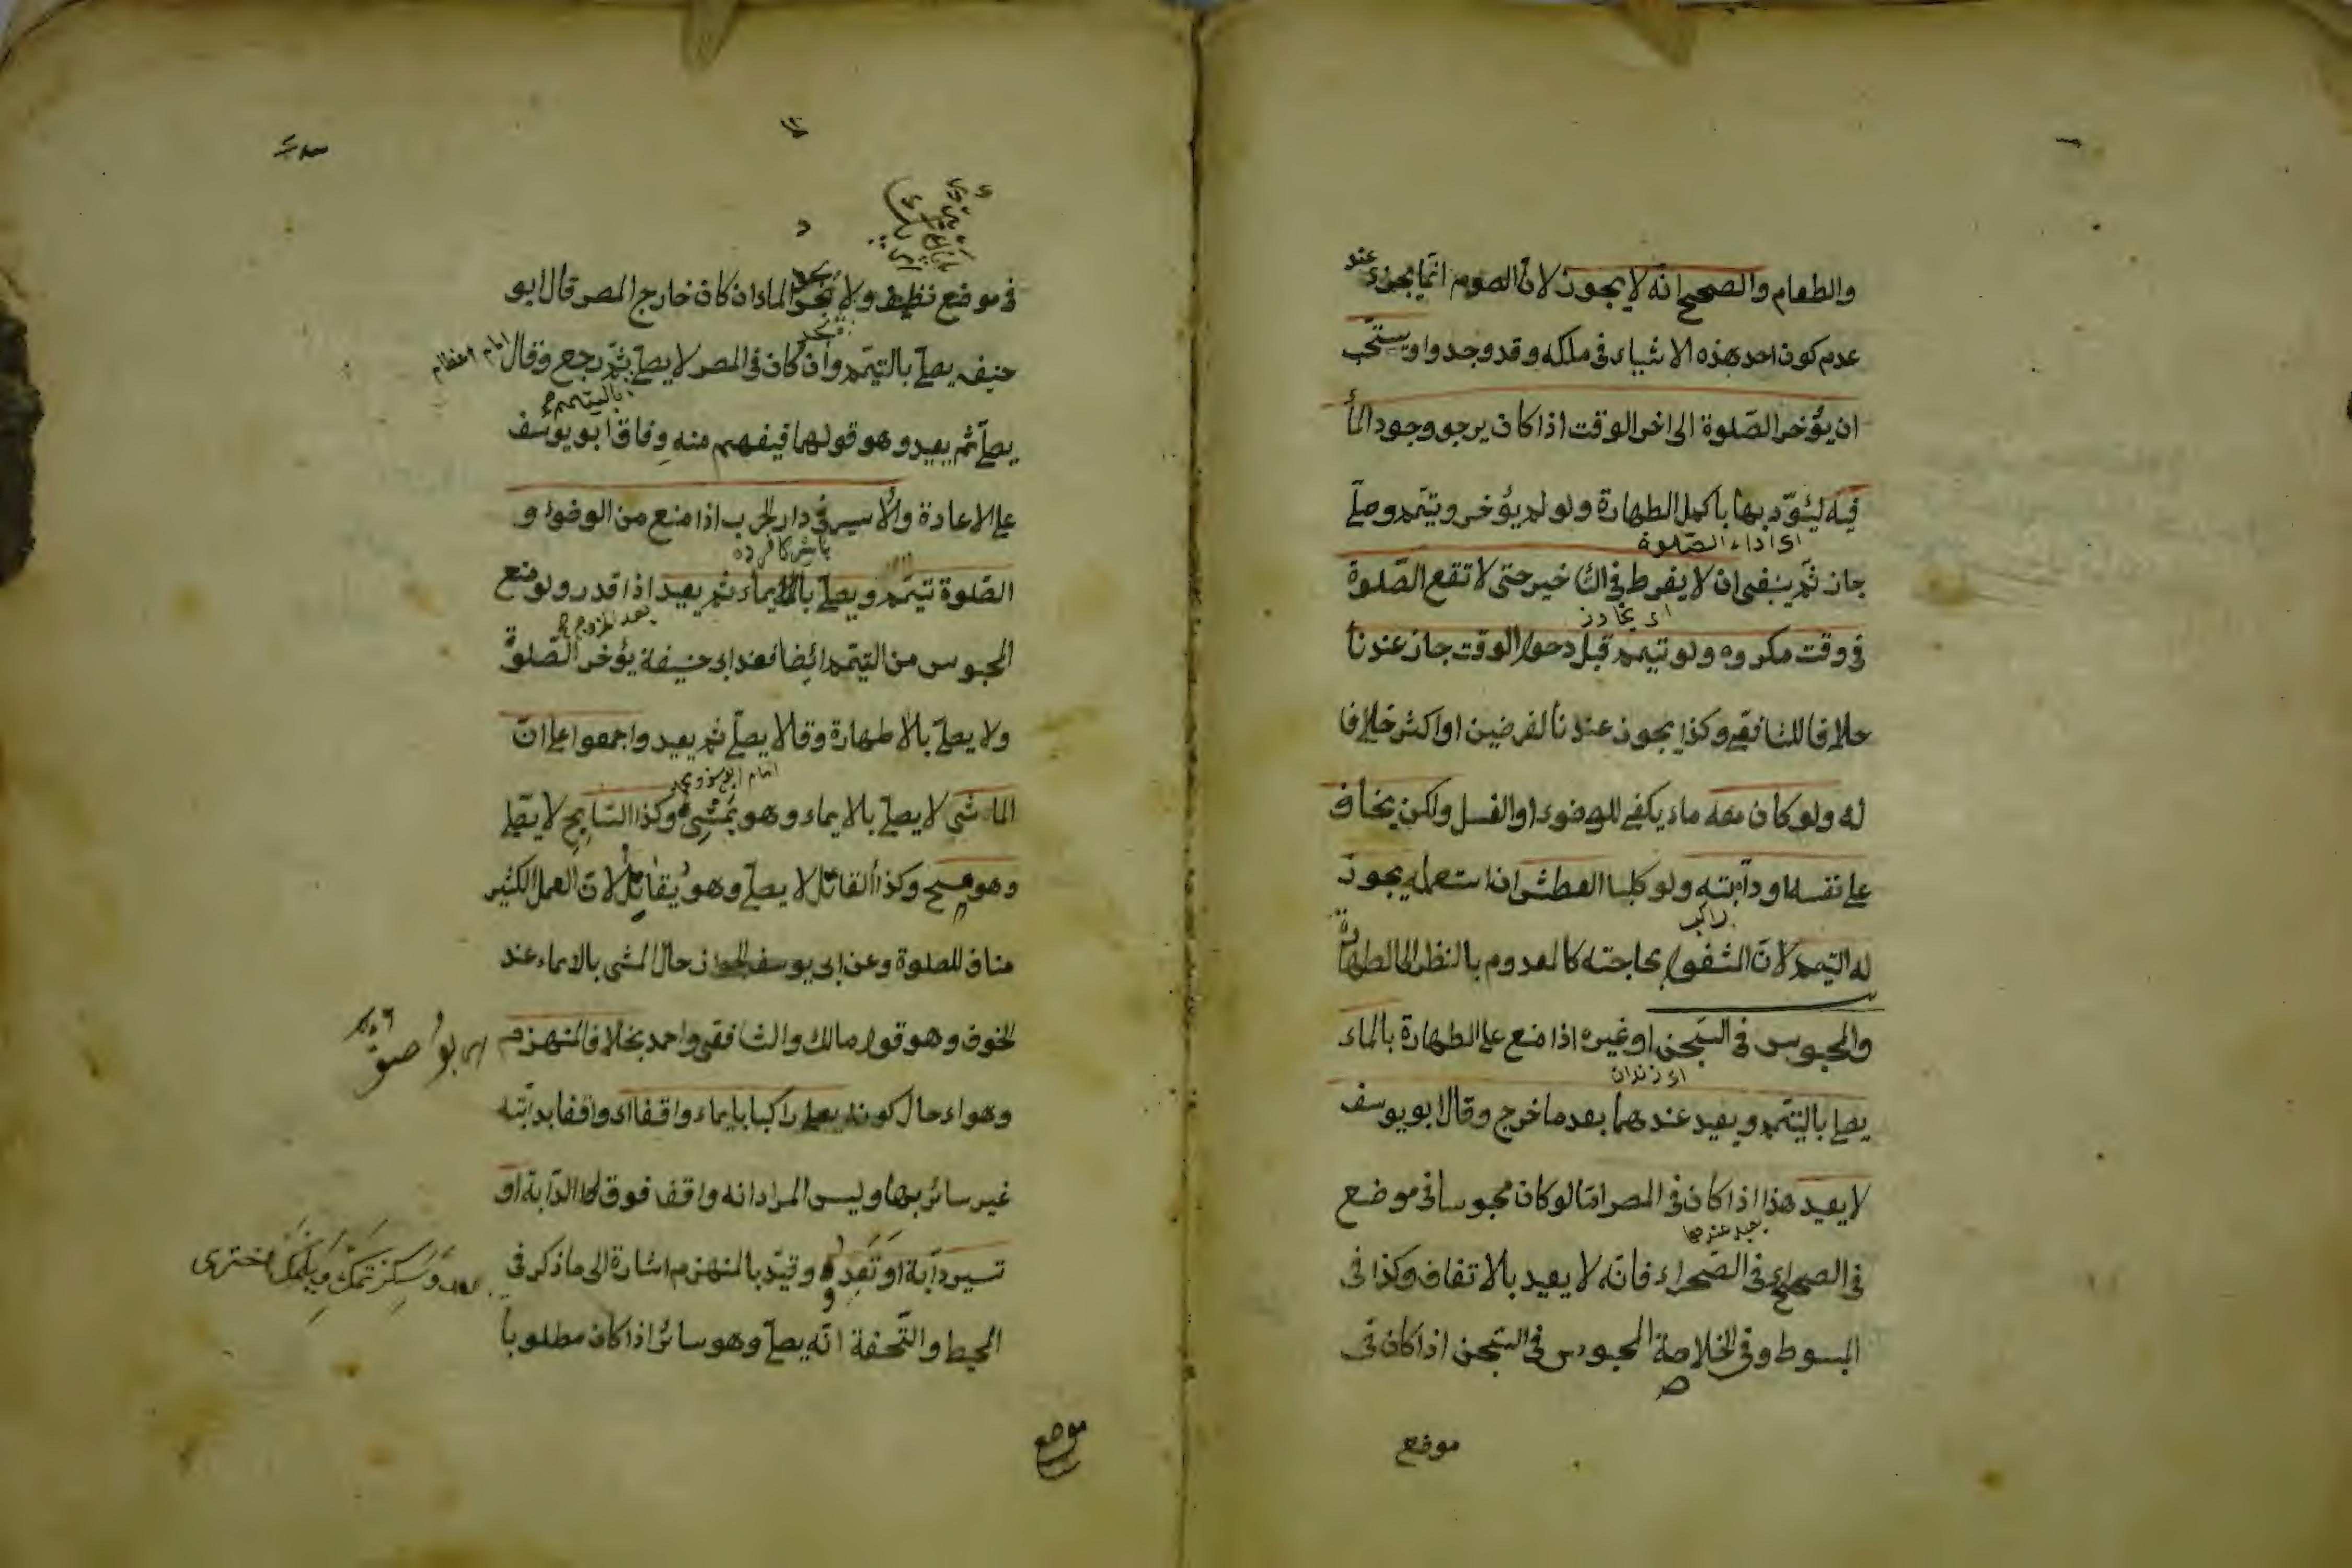 والطعام والصحيح انه لا يجوز لان الصوم انما يجزئ عند
عدم كون احد هذه الاشياء فى ملكه وقد وجد واو يستحب
ان يؤخر الصلوة الى اخر الوقت اذا كان يرجو وجود الماء
فيه ليؤديها باكمل الطهارة ولو لم يؤخر وتيمم وصلى
اى اداء الصلوة
جاز ثم ينبغى ان لا يفرط فى التأخير حتى لا تقع الصلوة
فى وقت مكروه ولو تيمم قبل دخول الوقت جاز عندنا
خلافا للشافعى وكذا يجوز عندنا لفرضين او اكثر خلافا
له ولو كان معه ماء يكفى للوضوء او الغسل ولكن يخاف
على نفسه او دابته ولو كلبا العطش ان استعمله يجوز
له التيمم لان المشغول بحاجته كالمعدوم بالنظر الى الطهارة
والمحبوس فى السجن او غيره اذا منع على الطهارة بالماء
اى زندان
يصلى بالتيمم ويعيد عندهما بعد ما خرج وقال ابو يوسف
لا يعيد هذا اذا كان فى المصر امالو كان محبوسا فى موضع
يعيد عندهما
فى الصحراء فانه لا يعيد بالاتفاق وكذا فى
المبسوط وفى الخلاصة المحبوس فى السجن اذا كان فى
موضع
فى موضع نظيف ولا يجد الماء ان كان خارج المصر قال ابو
حنيفه يصلى بالتيمم وان كان فى المصر لا يصلى ثم رجع وقال
امام اعظم
بالتيمم
يصلى ثم يعيد وهو قولهما فيفهم منه وفاق ابو يوسف
على الاعادة والاسير فى دار الحرب اذا منع من الوضوء و
الصلوة تيمم ويصلى بالايماء ثم يعيد اذا قدر ولو منع
بعد الخروج
المحبوس من التيمم ائضا فعند ابى حنيفة يؤخر الصلوة
ولا يصلى بلا طهارة وقالا يصلى ثم يعيد واجمعوا على ان
الماشى لا يصلى بالايماء وهو يمشى وكذا السابح لا يصلى
وهو يسبح وكذا القاتل لا يصلى وهو يقاتل لان العمل الكثير
مناف للصلوة وعن ابى يوسف الجواز حال المشى بالايماء عند
الخوف وهو قول مالك والشافعى واحمد بخلاف المنهزم
وهو اى حال كونه يصلى راكبا بايماء واقفا اى واقفا بدابته
غير سائر بها وليس المراد انه واقف فوق الدابة او
تسير دابة او تعدو وقيد بالمنهزم اشارة الى ما ذكر فى
المحيط والتحفة انه يصلى وهو سائر اذا كان مطلوبا
موضع